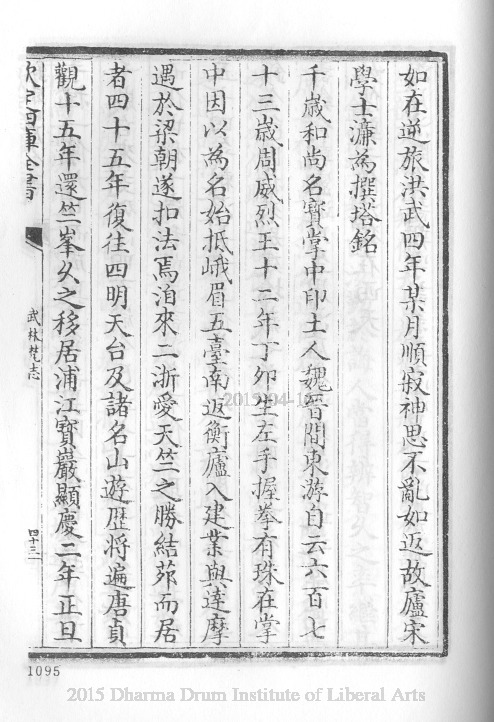 如在逆旅洪武四年某月順寂神思不亂如返故廬宋
學士濂為撰塔銘
千歲和尚名寶掌中印土人魏晉間東游自云六百七
十三歲周威烈王十二年丁卯生左手握拳有珠在掌
中因以為名始抵峨眉五臺南返衡廬入建業與達摩
遇於梁朝遂扣法焉洎來二浙愛天竺之勝結茆而居
者四十五年復往四明天台及諸名山遊歷將遍唐貞
觀十五年還竺峯久之移居浦江寶巖顯慶二年正旦
欽定四庫全書
武林梵志
四十三
1095
2015 Dharma Drum Institute of Liberal Arts